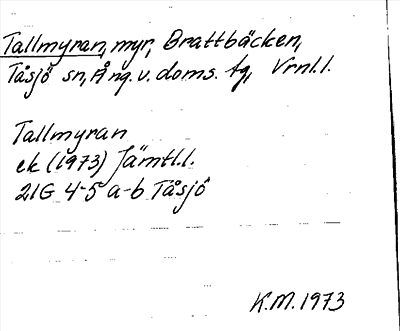 Tallmyran, myr, Brattbäcken,
Tåsjö sn, Ång. v. doms. tg, Vrnl.l.
Tallmyran
ek (1973) Jämtl.l.
21G 4-5 a-b Tåsjö
K.M. 1973